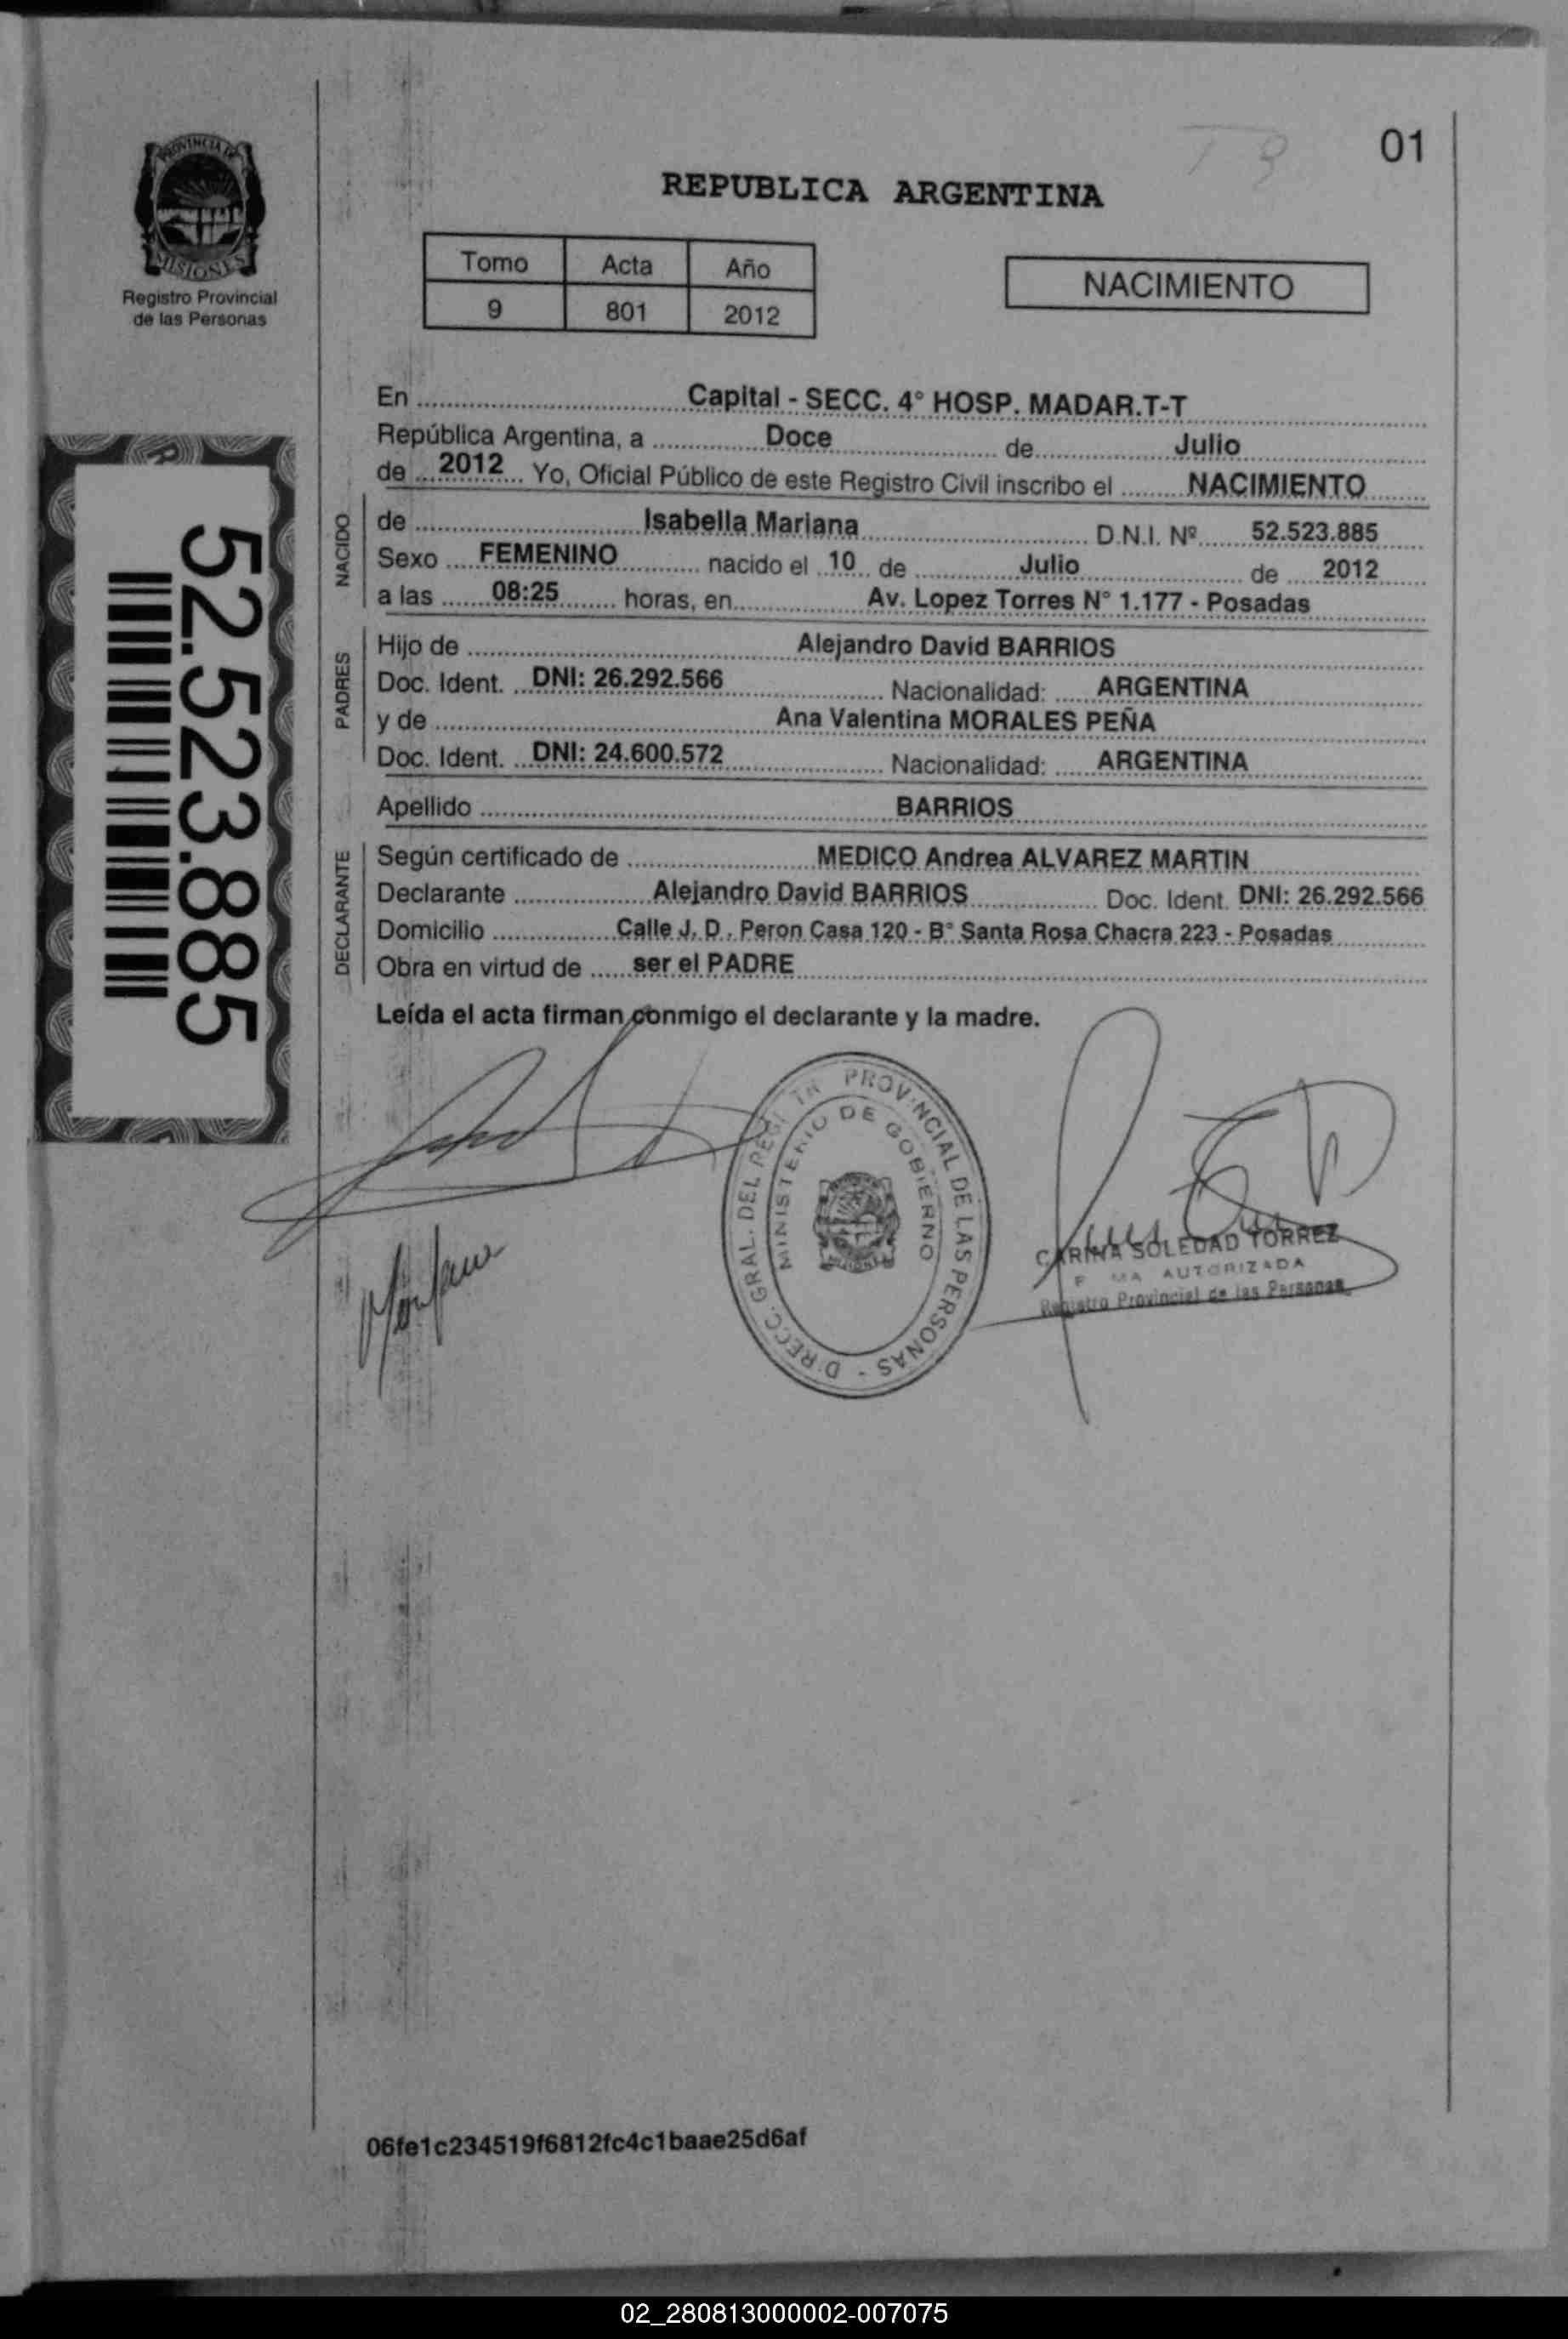 01
T 9
PROVINCIA DE
MISIONES
Registro Provincial
de las Personas
REPUBLICA ARGENTINA
Tomo Acta Año
9 801 2012
NACIMIENTO
52.523.885
En Capital - SECC. 4° HOSP. MADAR.T-T
República Argentina, a Doce de Julio
de 2012 Yo, Oficial Público de este Registro Civil inscribo el NACIMIENTO
NACIDO
de Isabella Mariana D.N.I. Nº 52.523.885
Sexo FEMENINO nacido el 10 de Julio de 2012
a las 08:25 horas, en Av. Lopez Torres N° 1.177 - Posadas
PADRES
Hijo de Alejandro David BARRIOS
Doc. Ident. DNI: 26.292.566 Nacionalidad: ARGENTINA
y de Ana Valentina MORALES PEÑA
Doc. Ident. DNI: 24.600.572 Nacionalidad: ARGENTINA
Apellido BARRIOS
DECLARANTE
Según certificado de MEDICO Andrea ALVAREZ MARTIN
Declarante Alejandro David BARRIOS Doc. Ident. DNI: 26.292.566
Domicilio Calle J. D. Peron Casa 120 - B° Santa Rosa Chacra 223 - Posadas
Obra en virtud de ser el PADRE
Leída el acta firman conmigo el declarante y la madre.
PROVINCIAL DE LAS PERSONAS - DIRECC. GRAL. DEL
MINISTERIO DE GOBIERNO
CARINA SOLEDAD TORREZ
AUTORIZADA
Registro Provincial de las Personas
06fe1c234519f6812fc4c1baae25d6af
02_280813000002-007075